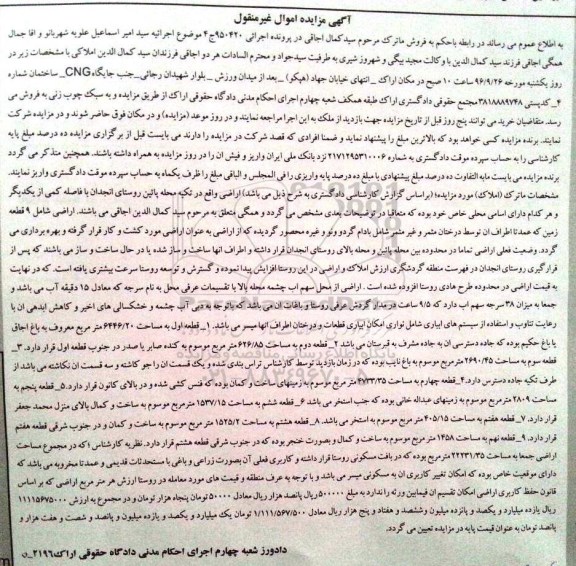 آگهی مزایده اموال غیرمنقول
به اطلاع عموم می رساند در رابطه باحکم به فروش ماترک مرحوم سیدکمال اجاقی در پرونده اجرائی ۹۵۰۴۲۰ج۴ موضوع اجرائیه سید امیر اسماعیل علویه شهربانو و اقا جمال
همگی اجاقی فرزند سید کمال الدین با وکالت مجید بیگی و شهروز شیری به طرفیت سیدجواد و محترم السادات هر دو اجاقی فرزندان سید کمال الدین املاکی با مشخصات زیر در
روز یکشنبه مورخه ۹۶/۹/۲۶ ساعت ۱۰ صبح در مکان اراک _انتهای خیابان جهاد (هپکو) _بعد از میدان ورزش _بلوار شهیدان رجائی_جنب جایگاه CNG_ ساختمان شماره
۴_کدپستی ۳۸۱۸۸۸۹۷۴۸مجتمع حقوقی دادگستری اراک طبقه همکف شعبه چهارم اجرای احکام مدنی دادگاه حقوقی اراک از طریق مزایده و به سبک چوب زنی به فروش می
رسد. متقاضیان خرید می توانند پنج روز قبل از تاریخ مزایده جهت بازدید از ملک به این اجرا مراجعه نمایند و در روز موعد (مزایده) و در مکان فوق حاضر شوند و در مزایده شرکت
نمایند. برنده مزایده کسی خواهد بود که بالاترین مبلغ را پیشنهاد نماید و ضمنا افرادی که قصد شرکت در مزایده را دارند می بایست قبل از برگزاری مزایده ده درصد مبلغ پایه
کارشناسی را به حساب سپرده موقت دادگستری به شماره ۲۱۷۱۲۹۵۳۱۰۰۰۶ نزد بانک ملی ایران واریز و فیش ان را در روز مزایده به همراه داشته باشند. همچنین متذکر می گردد
برنده مزایده می بایست مابه التفاوت ده درصد مبلغ پیشنهادی با مبلغ ده درصد پایه واریزی را فی المجلس و الباقی مبلغ را ظرف یکماه به حساب سپرده موقت دادگستری واریز نمایند.
مشخصات ماترک (املاک) مورد مزایده؛ (براساس گزارش کارشناسی دادگستری به شرح ذیل می باشد) اراضی واقع در تکیه محله پائین روستای انجدان با فاصله کمی از یکدیگر
و هر کدام دارای اسامی محلی خاص خود بوده که متعاقبا در توضیحات بعدی مشخص می گردد و همگی متعلق به مرحوم سید کمال الدین اجاقی می باشند. اراضی شامل ۹ قطعه
زمین که عمدتا اطراف ان توسط درختان مثمر و غیر مثمر شامل بادام گردو ونو و غیره محصور گردیده که از اراضی به عنوان اراضی مورد کشت و کار قرار گرفته و بهره برداری می
گردد. وضعیت فعلی اراضی تماما در محدوده بین محله پائین و محله بالای روستای انجدان قرار داشته و اطراف انها ساخت و ساز شده یا در حال ساخت و ساز می باشند که پس از
قرارگیری روستای انجدان در فهرست منطقه گردشگری ارزش املاک و اراضی در این روستا افزایش پیدا نموده و گسترش و توسعه روستا سرعت بیشتری یافته است. که در نهایت
به قیمت اراضی در محدوده طرح هادی روستا افزوده شده است . اراضی از محل سهم اب چشمه محله بالا با تقسیمات عرفی محل به نام سرجه که معادل ۱۵ دقیقه آب می باشد و
جمعا به میزان ۳۸ سرجه سهم اب دارد که ۹/۵ ساعت در مدار گردش عرفی روستا و باغات ان می باشد که باتوجه به دبی آب چشمه و خشکسالی های اخیر و کاهش ابدهی ان با
رعایت تناوب و استفاده از سیستم های ابیاری شامل نواری امکان ابیاری قطعات و درختان اطراف انها میسر می باشد. ۱_قطعه اول به مساحت ۶۴۴۶/۲۰ متر مربع معروف به باغ اجاق
یا باغ حکیم بوده که جاده دسترسی ان به جاده مشرف به قبرستان می باشد ۲_قطعه دوم به مساحت ۶۲۶/۸۵ مترمربع موسوم به کنده صابر یا صدر در جنوب قطعه اول قرار دارد. ۳_
قطعه سوم به مساحت ۲۶۹۰/۴۵ مترمربع موسوم به باغ نایب بوده که در زمان بازدید توسط کارشناس تراس بندی شده و یک قسمت ان را جو کاشته و سه قسمت ان نکاشته می باشد از
طرف تکیه جاده دسترس دارد. ۴_قطعه چهارم به مساحت ۴۷۳۳/۳۵ مترمربع موسوم به زمینهای ساخت و کمان بوده که فنس کشی شده و در بالای کانون قرار دارد. ۵_قطعه پنجم به
مساحت ۲۸۰۹ مترمربع موسوم به زمینهای عبداله خانی بوده که جنب استخر می باشد ۶_قطعه ششم به مساحت ۱۵۳۷/۱۵ مترمربع موسوم به ساخت و کمال بالای منزل محمد جعفر
قرار دارد. ۷_قطعه هفتم به مساحت ۴۰۵/۱۵ مترمربع موسوم به استخر می باشد. ۸_قطعه هشتم به مساحت ۱۵۲۵/۲ مترمربع موسوم به ساخت و کمان و در جنوب شرقی قطعه هفتم
قرار دارد. ۹_قطعه نهم به مساحت ۱۴۵۸ مترمربع موسوم به ساخت و کمال و بصورت خنجر بوده که در جنوب شرقی قطعه هشتم قرار دارد. نظریه کارشناس ؛که در مجموع مساحت
اراضی جمعا به مساحت ۲۲۲۳۱/۳۵ مترمربع بوده که در بافت مسکونی روستا قرار داشته و کاربری فعلی آن بصورت زراعی و باغی با مستحدثات قدیمی و عمدتا مخروبه می باشد که
دارای موقعیت خاص بوده که امکان تغییر کاربری ان به مسکونی میسر می باشد و با توجه به عرف منطقه و قیمت های مورد معامله در روستا ارزش هر متر مربع اراضی که بر اساس
قانون حفظ کاربری اراضی امکان تقسیم ان فیمابین ورثه را ندارد به مبلغ ۵۰۰۰۰۰ ریال پانصد هزار ریال معادل ۵۰۰۰۰ تومان پنجاه هزار تومان و در مجموع به ارزش ۱۱۱۱۵۶۷۵۰۰۰
ریال یازده میلیارد و یکصد و پانزده میلیون وششصد و هفتاد و پنج هزار ریال معادل ۱/۱۱۱/۵۶۷/۵۰۰ تومان یک میلیارد و یکصد و یازده میلیون و پانصد و شصت و هفت هزار و
پانصد تومان به عنوان قیمت پایه در مزایده تعیین می گردد.
دادورز شعبه چهارم اجرای احکام مدنی دادگاه حقوقی اراک ۲۱۹۶_ن